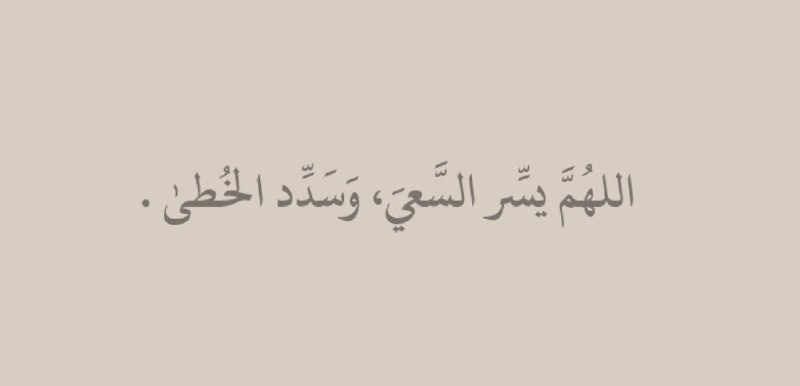 اللهُمَّ يسِّر السَّعيَ، وَسَدِّد الخُطىٰ .